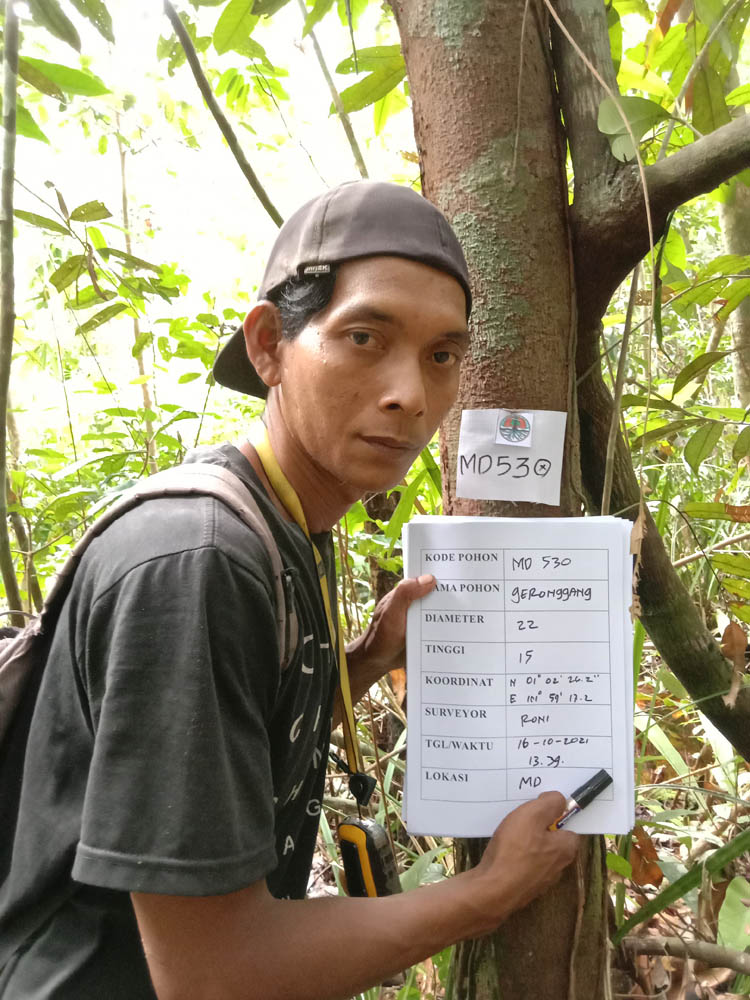 MD530
KODE POHON MD 530
NAMA POHON gERONggANg
DIAMETER 22
TINGGI 15
KOORDINAT N 01° 02' 26.2"
E 101° 59' 17.2
SURVEYOR RONI
TGL/WAKTU 16-10-2021
LOKASI MD